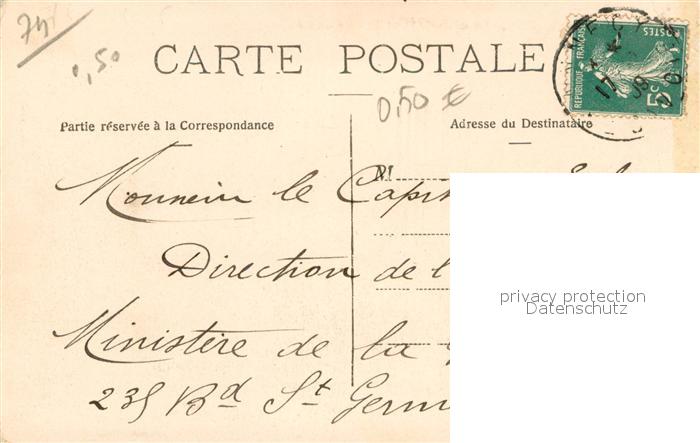 74
0,50
CARTE POSTALE
0,50 €
POSTES
REPUBLIQUE FRANÇAISE
5c
17
09
Partie réservée à la Correspondance
Adresse du Destinataire
M
Monsieur le Capit
Direction de l
privacy protection
Datenschutz
Ministère de la
235 Bd St Germ